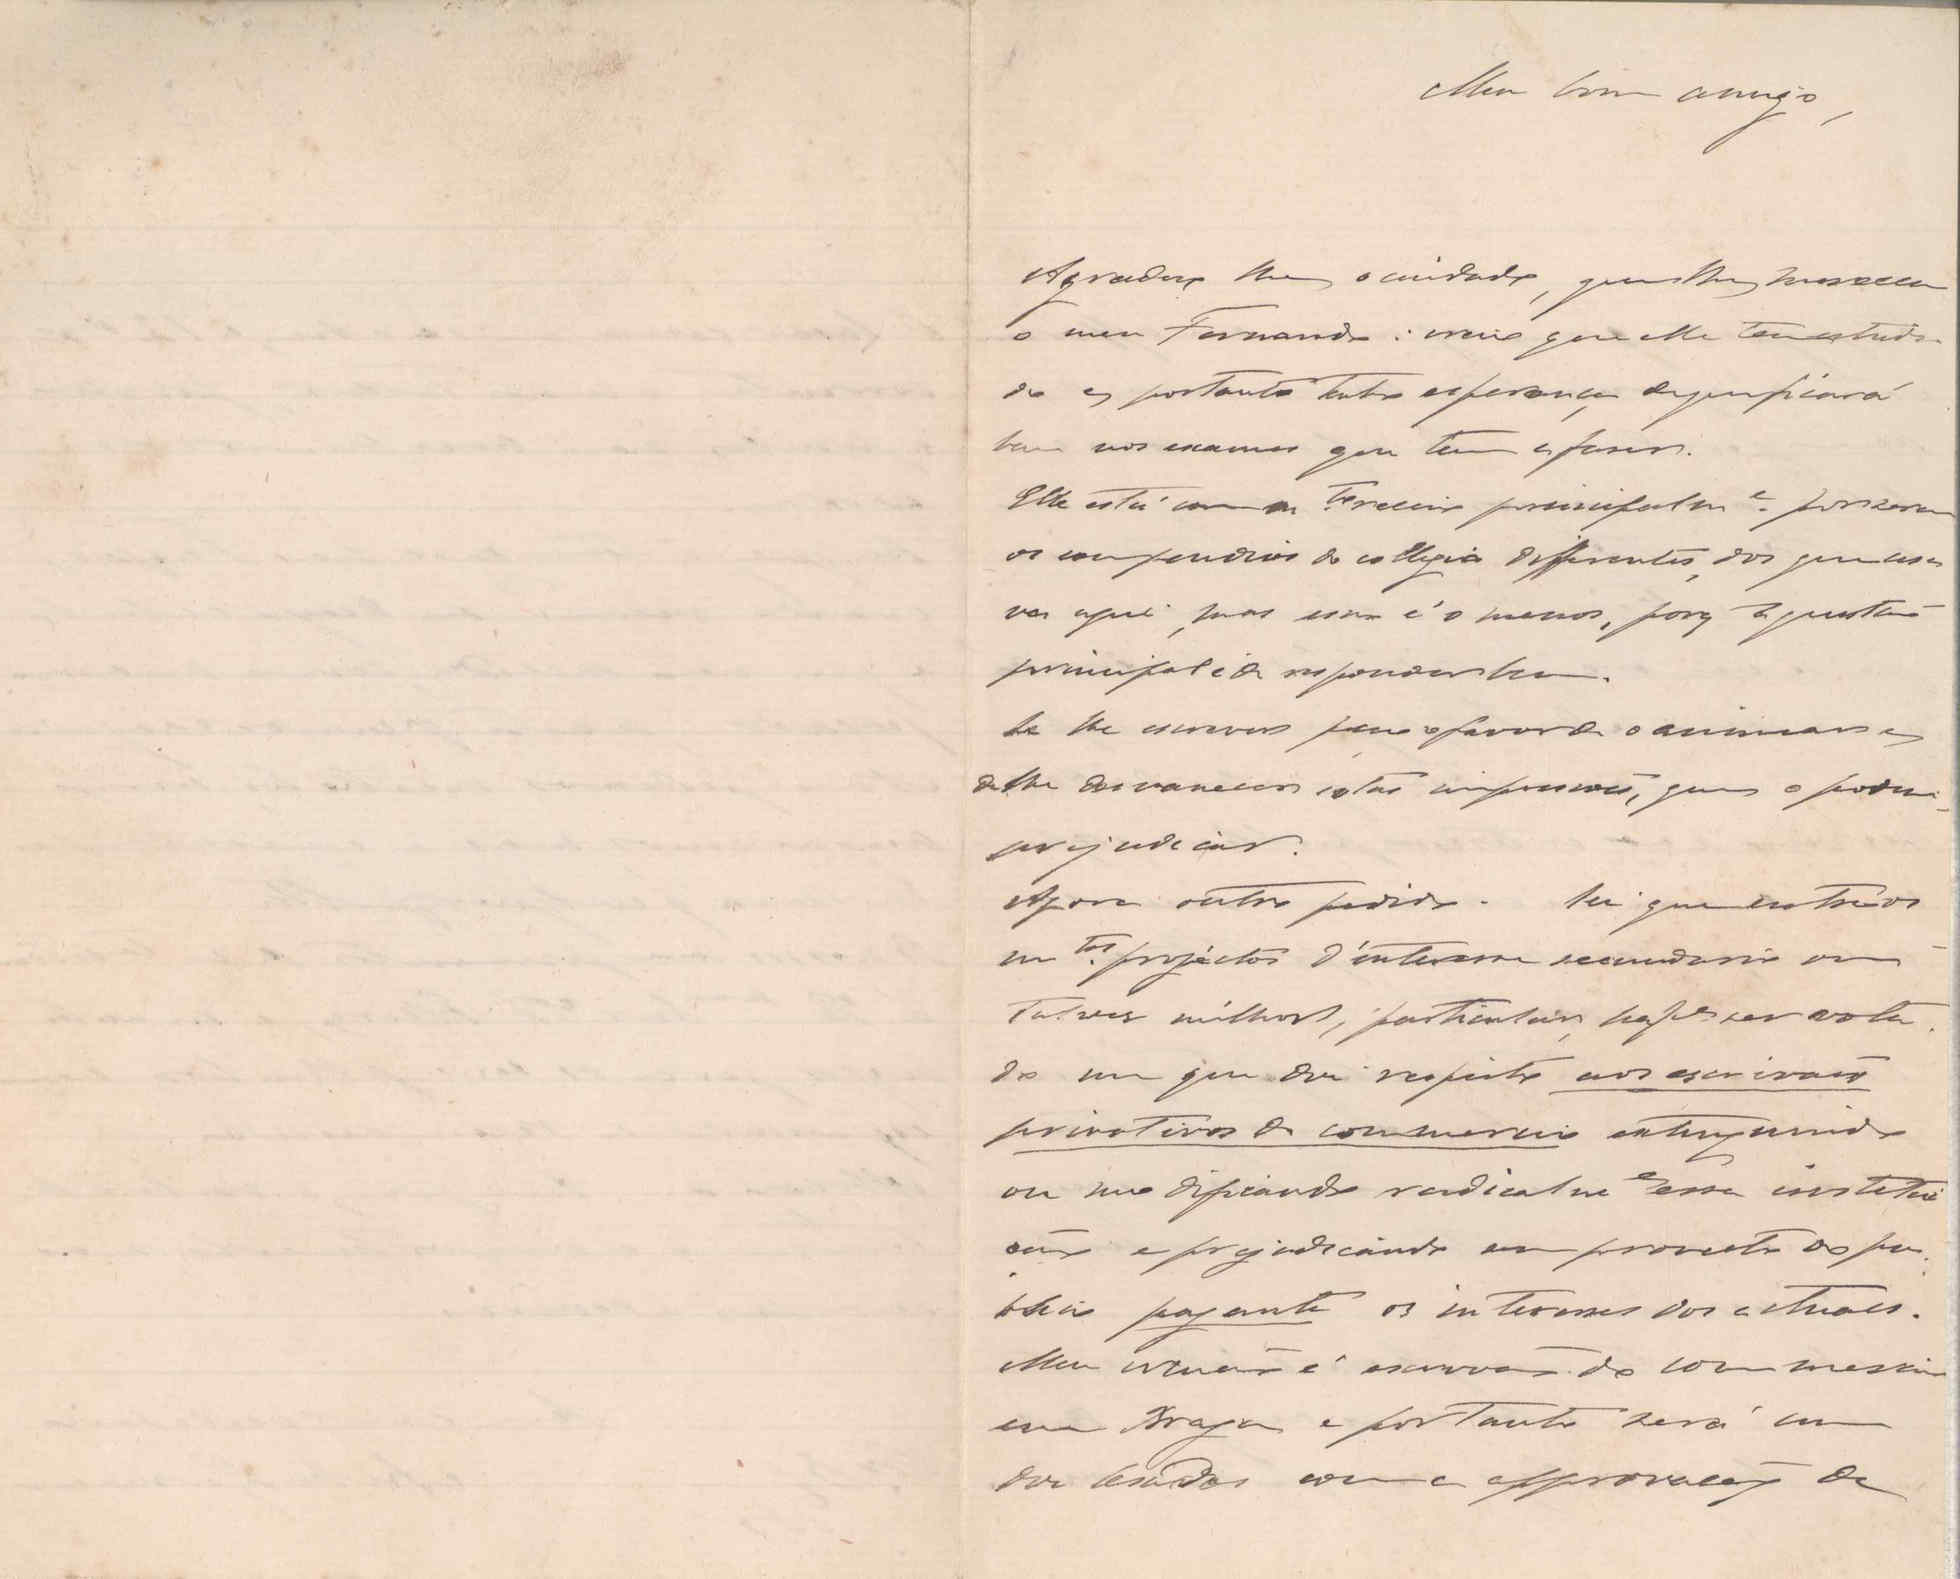 Meu bom amigo,
Agradeço lhe o cuidado, que lhe merece
o meu Fernando: creio que elle tem estuda
do e portanto tenho esperança de que ficará
bem nos exames que tem a fazer.
Elle está com terceiro principalm.e por serem
os compendios do collegio differentes, dos que usa
va aqui, mas isso é o menos, porq a questão
principal é de responder bem.
Se lhe escrever faça o favor de o animar e
de lhe desvanecer estas impressões, que o podem
prejudicar.
Agora outro pedido. Sei que entre os
m.tos projectos d'interesse secundario ou
talvez milhor, particular, vota
do um que diz respeito aos escrivães
privativos do commercio extinguindo
ou modificando radicalm.e essa institui
ção e prejudicando em proveito do pu
blico pagante os interesses dos actuaes.
Meu irmão é escrivão do commercio
em Braga e portanto será um
dos lesados com a approvação de